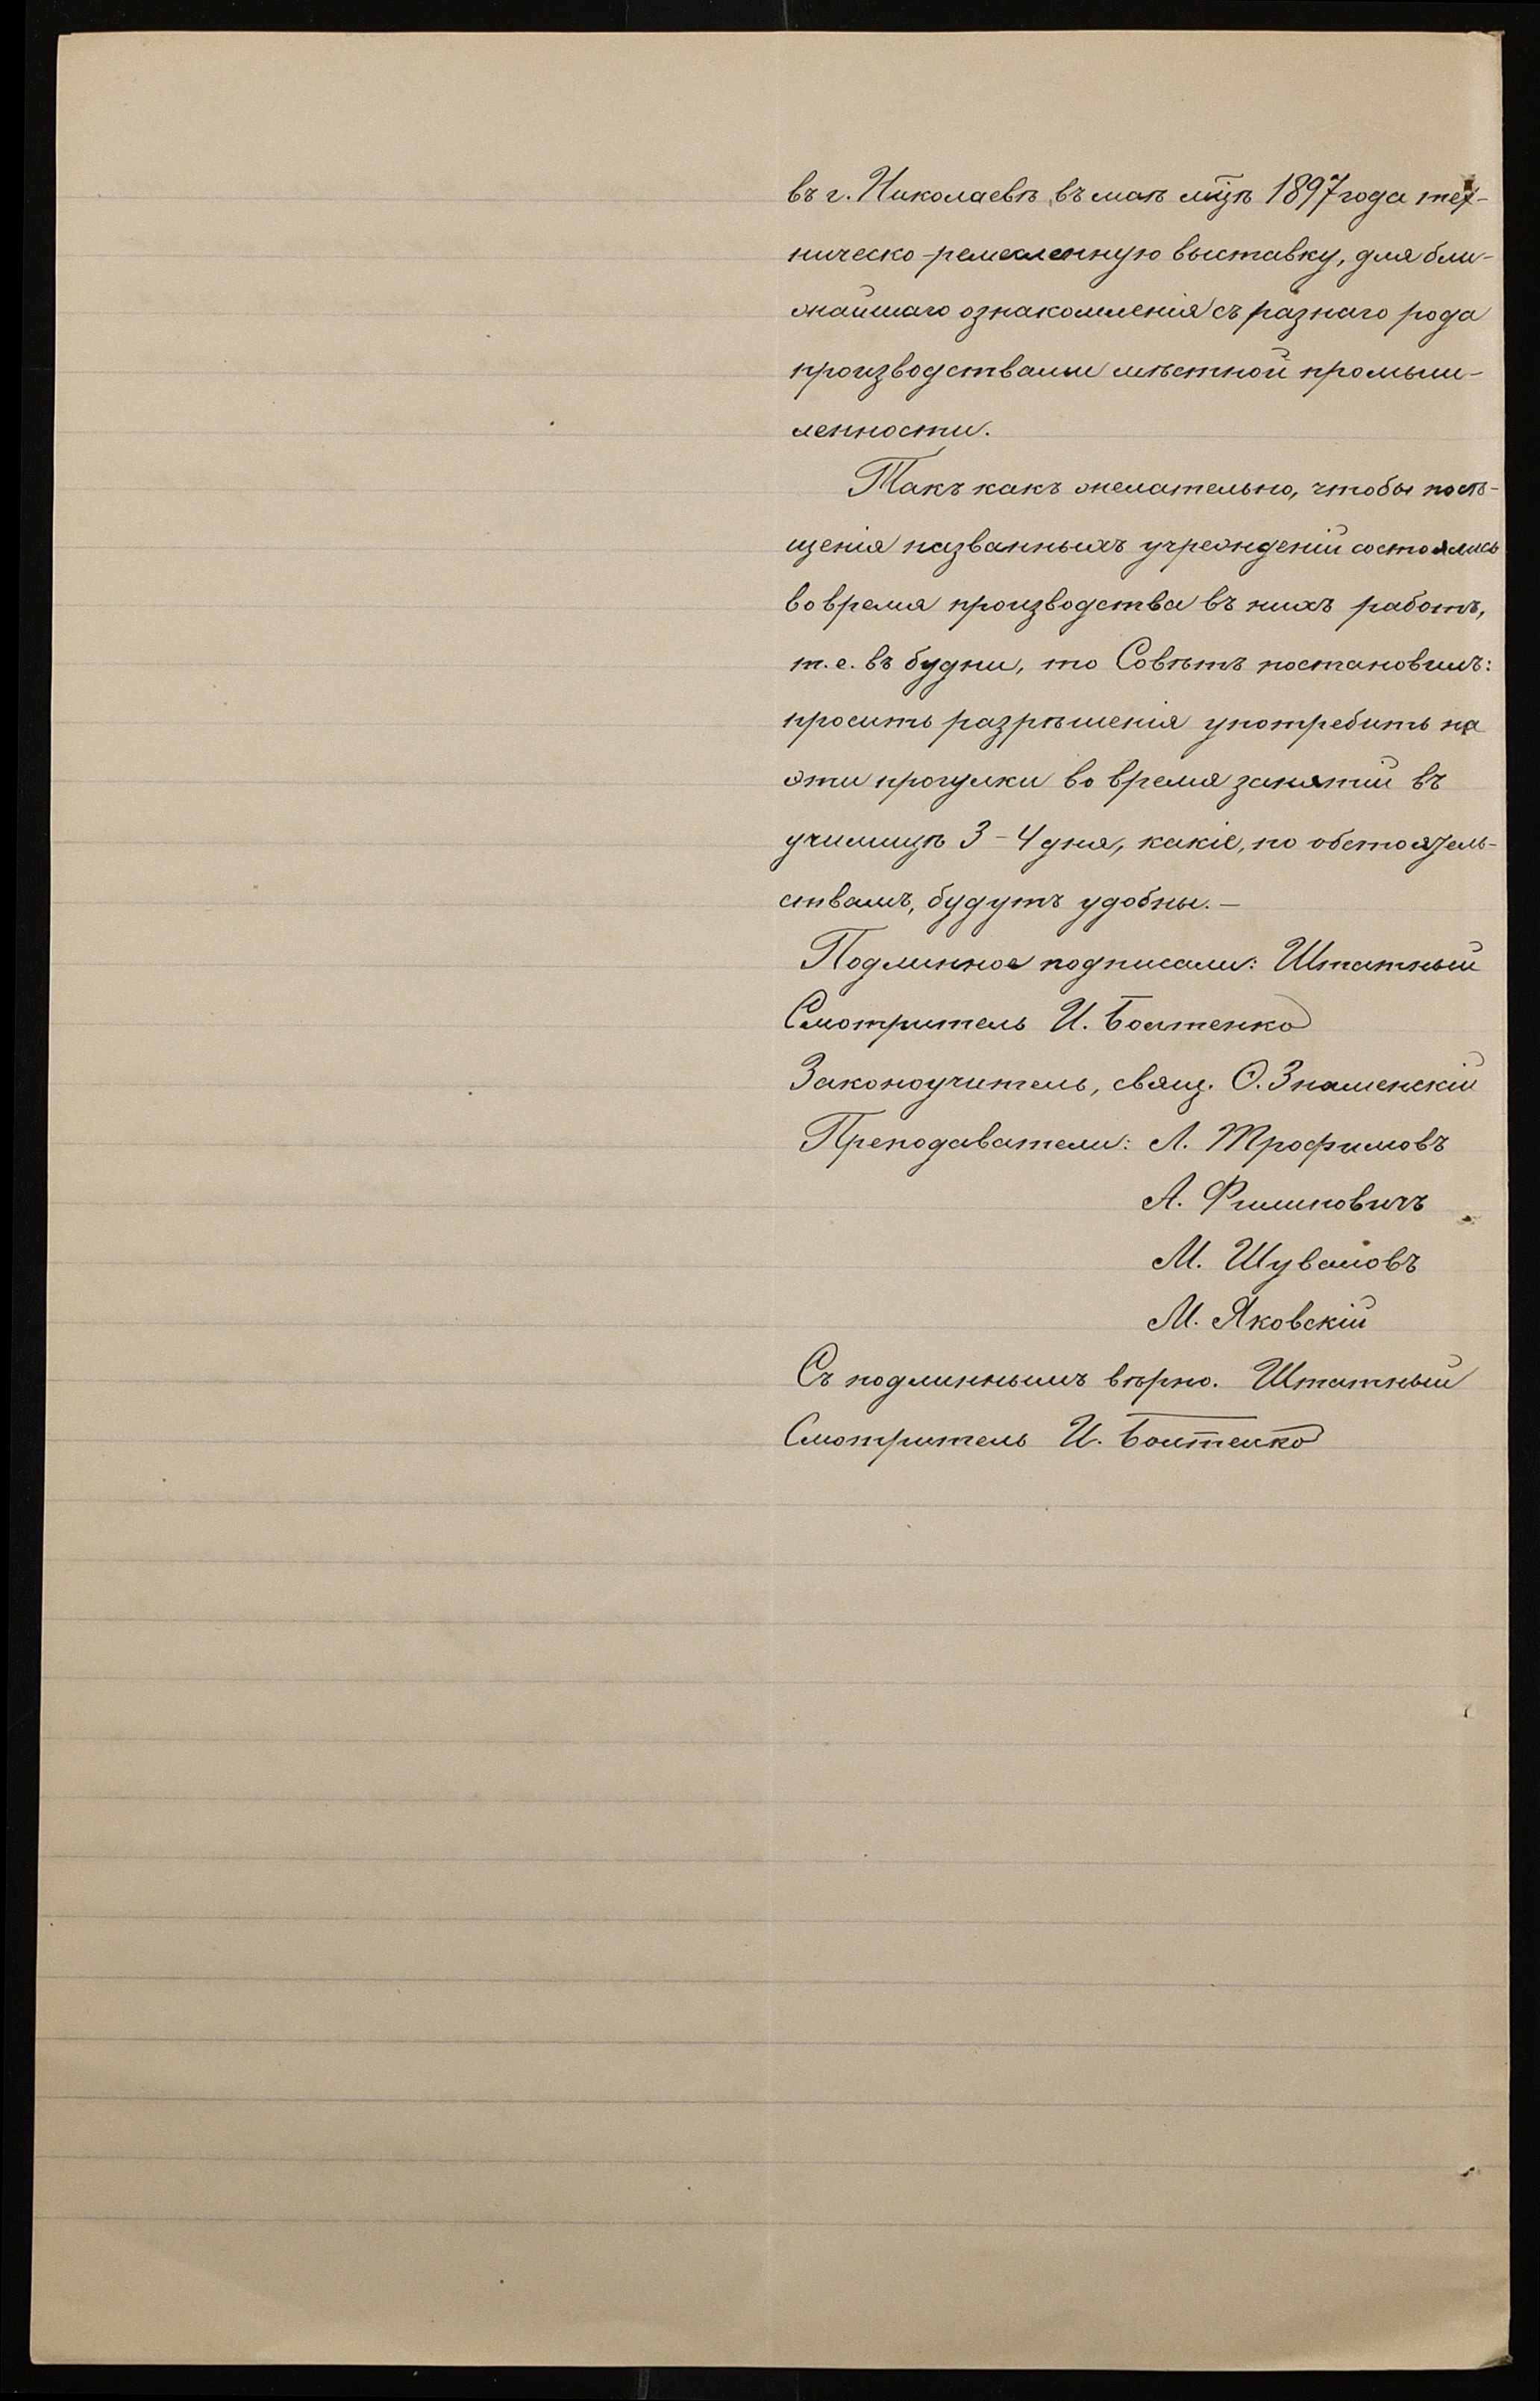 въ г. Николаевѣ, въ маѣ мц̃ѣ 1897 года тех-
ническо-ремесленную выставку, для бли-
жайшаго ознакомленія съ разнаго рода
производствами мѣстной промыш-
ленности.
Такъ какъ желательно, чтобы посѣ-
щенія названныхъ учрежденій состоялись
во время производства въ нихъ работъ,
т. е. въ будни, то Совѣтъ постановилъ:
просить разрѣшенія употребить на
эти прогулки во время занятій въ
училищѣ 3-4 дня, какіе, по обстоятель-
ствамъ, будутъ удобны. —
Подлинное подписали: Штатный
Смотритель И. Болтенко
Законоучитель, свящ. Ѳ. Знаменскій
Преподаватели: Л. Трофимовъ
А. Филиповичъ
М. Шуваловъ
М. Яковскій
Съ подлиннымъ вѣрно. Штатный
Смотритель И. Болтенко